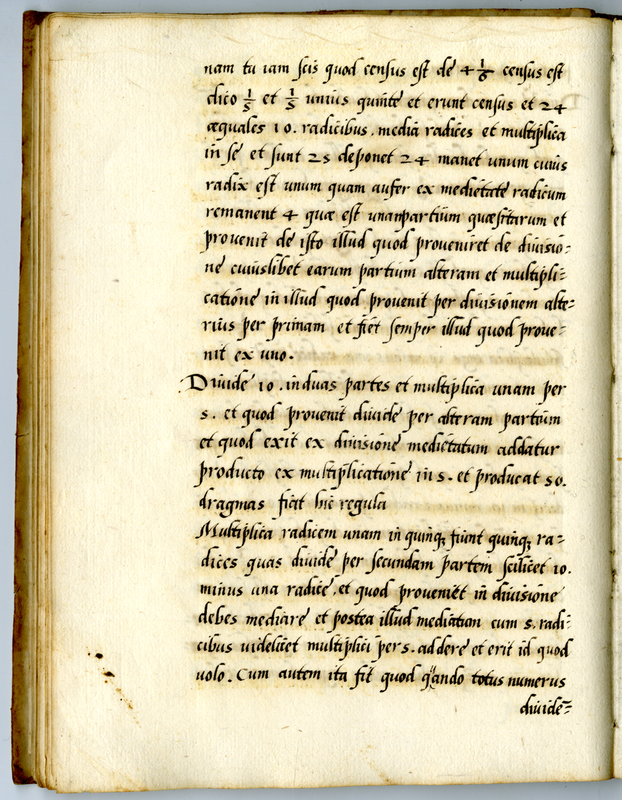 nam tu iam scis quod census est de 4 1/6 census est
dico 1/5 et 1/5 unius quinte et erunt census et 24
æquales 10. radicibus. media radices et multiplica
in se et sunt 25 deponet 24 manet unum cuius
radix est unum quam aufer ex medietate radicum
remanent 4 quæ est una partium quæsitarum et
provenit de isto illud quod proveniret de divisio-
ne cuiuslibet earum partium alteram et multipli-
catione in illud quod provenit per divisionem alte-
rius per primam et fiet semper illud quod prove-
nit ex uno.
Divide 10. in duas partes et multiplica unam per
5. et quod provenit divide per alteram partem
et quod exit ex divisione medietatum addatur
producto ex multiplicatione in 5. et producat 50.
dragmas fiat hic regula
Multiplica radicem unam in quinq; fiunt quinq; ra-
dices quas divide per secundam partem scilicet 10.
minus una radice. et quod proveniet in divisione
debes mediare et postea illud mediatum cum 5. radi-
cibus videlicet multiplici per 5. addere et erit id quod
volo. Cum autem ita fit quod quando totus numerus
divide-